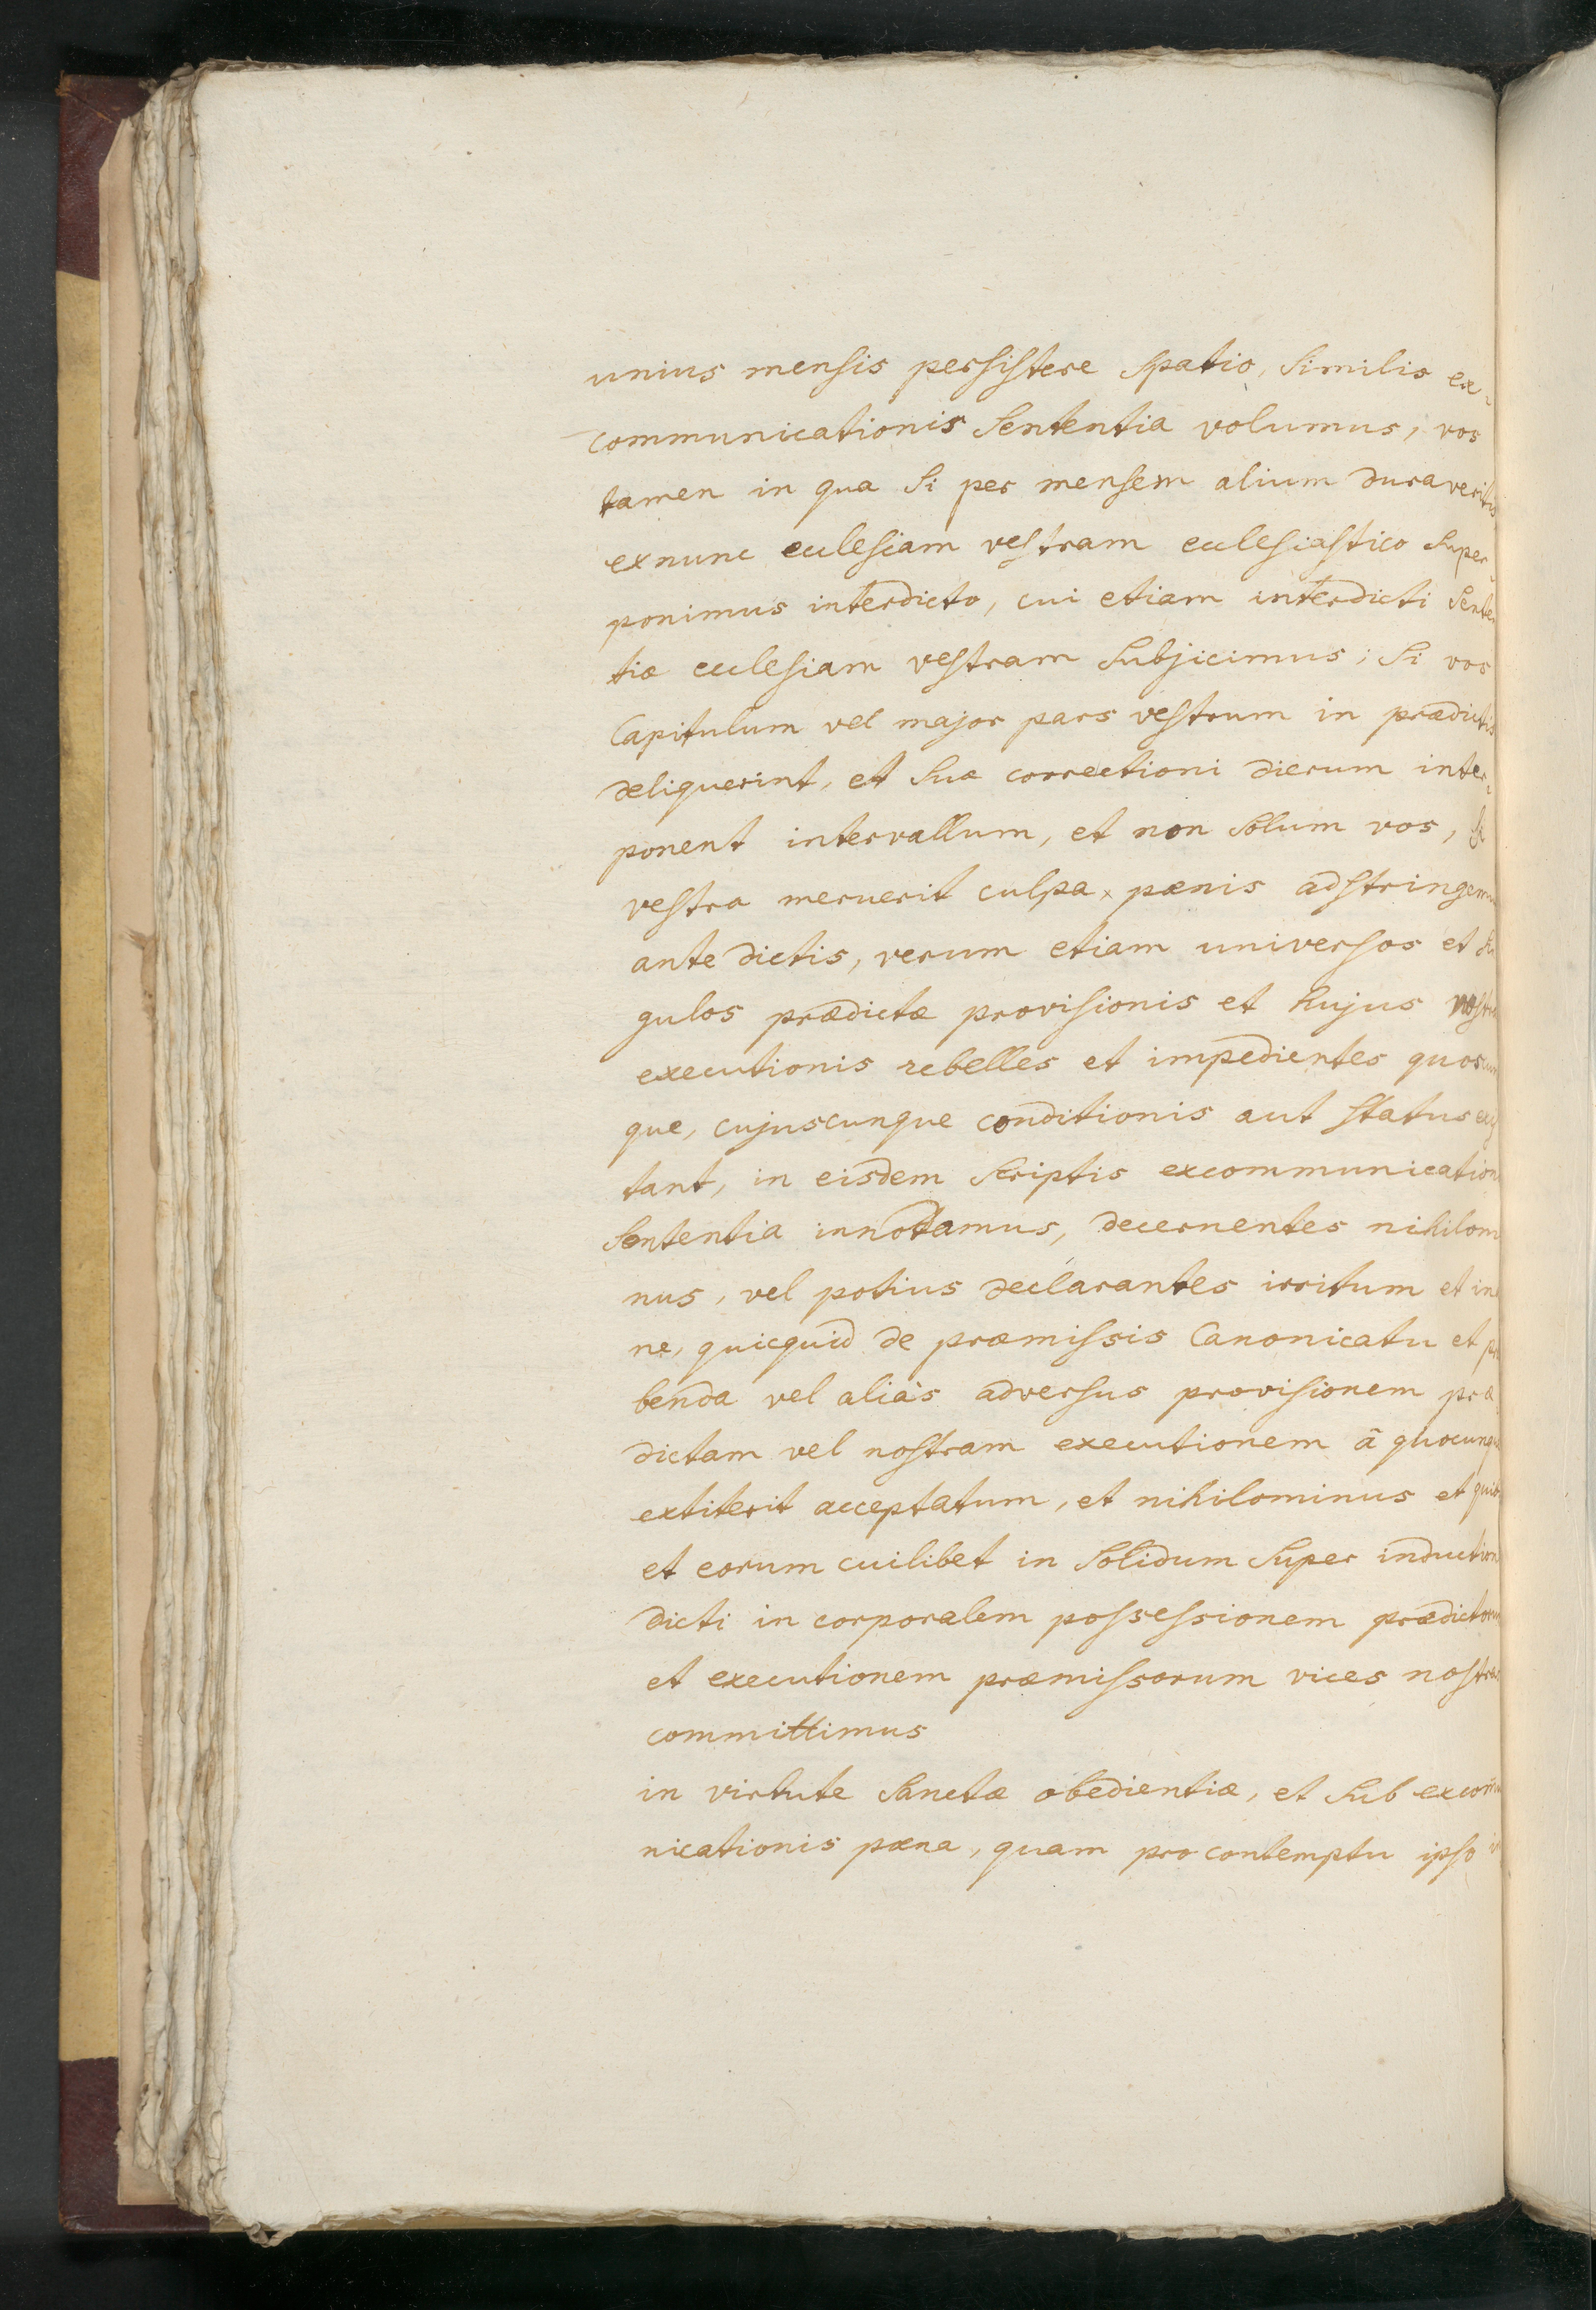 unius mensis persistere spatio, similis ex-
communicationis sententia volumus, vos
tamen in qua si per mensem alium duraveritis
exnunc ecclesiam vestram ecclesiastico super-
ponimus interdicto, cui etiam interdicti senten
tiæ ecclesiam vestram subjicimus; si vos
Capitulum vel major pars vestrum in prædictis
deliquerint, et suæ correctioni dierum inter-
ponent intervallum, et non solum vos, si
vestra meruerit culpa, pænis adstringemus
ante dictis, verum etiam universos et sin
gulos prædictæ provisionis et hujus nostræ
executionis rebelles et impedientes quoscun
que, cujuscunque conditionis aut status exis
tant, in eisdem scriptis excommunicationis
sententia innodamus, decernentes nihilomi
nus, vel potius declarantes irritum et ina
ne, quicquid de præmissis Canonicatu et præ
benda vel aliàs adversus provisionem præ
dictam vel nostram executionem ā quocunque
extiterit acceptatum, et nihilominus et quib
et eorum cuilibet in solidum super inductione
dicti in corporalem possessionem prædictorum
et executionem præmissorum vices nostras
committimus
in virtute sanctæ obedientiæ, et sub excom̄u
nicationis pæna, quam pro contemptu ipso